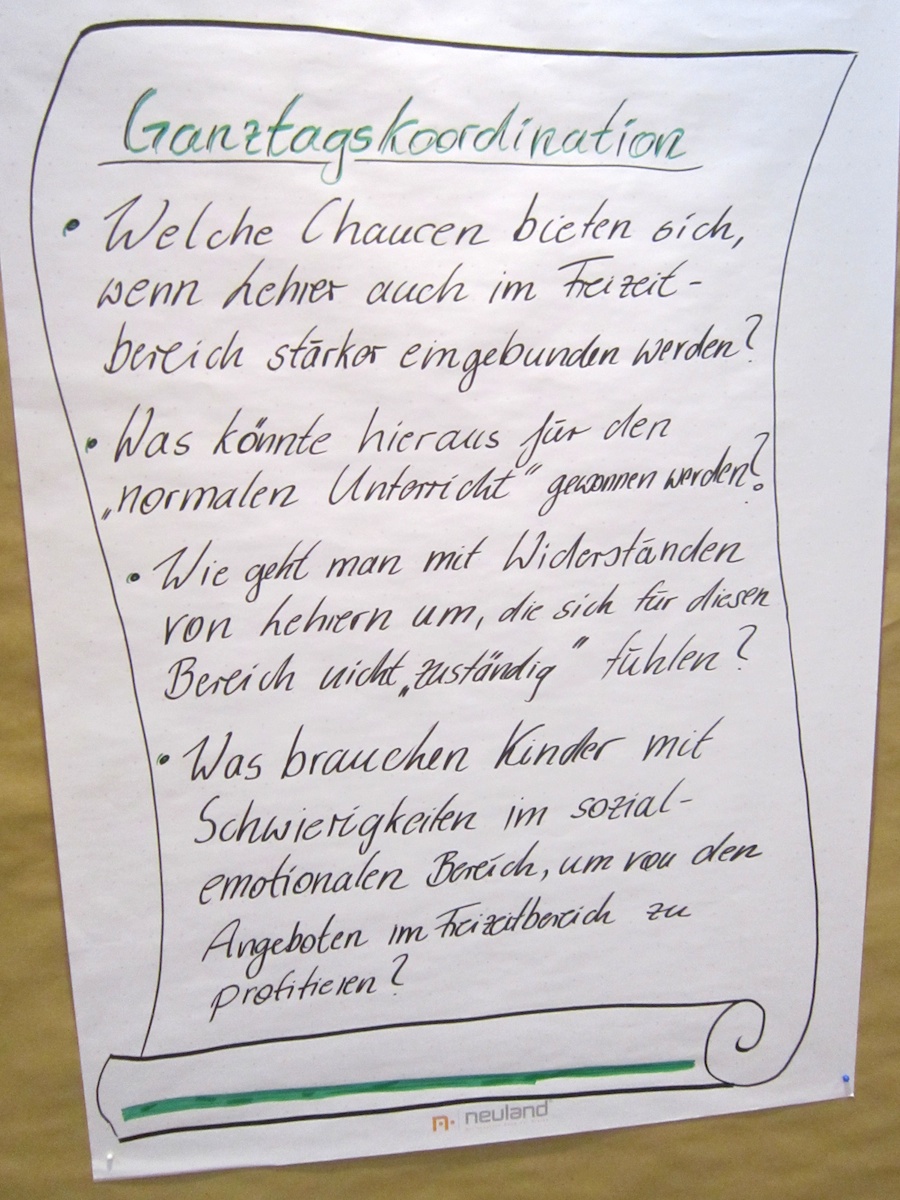 Ganztagskoordination
• Welche Chancen bieten sich,
wenn Lehrer auch im Freizeit-
bereich stärker eingebunden werden?
• Was könnte hieraus für den
„normalen Unterricht" gewonnen werden?
• Wie geht man mit Widerständen
von Lehrern um, die sich für diesen
Bereich nicht „zuständig" fühlen?
• Was brauchen Kinder mit
Schwierigkeiten im sozial-
emotionalen Bereich, um von den
Angeboten im Freizeitbereich zu
profitieren?
n. neuland